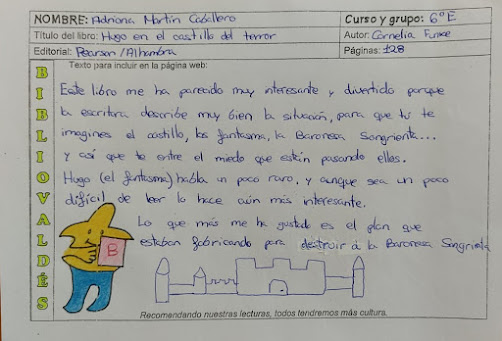 NOMBRE: Adriana Martín Caballero
Curso y grupo: 6ºE
Título del libro: Hugo en el castillo del terror
Autor: Cornelia Funke
Editorial: Pearson/Alhambra
Páginas: 128
Texto para incluir en la página web:
BIBLIOVALDÉS
Este libro me ha parecido muy interesante y divertido porque
la escritora describe muy bien la situación, para que tú te
imagines el castillo, los fantasma, la Baronesa Sangrienta...
y así que te entre el miedo que están pasando ellos.
Hugo (el fantasma) habla un poco raro, y aunque sea un poco
difícil de leer lo hace aún más interesante.
Lo que más me ha gustado es el plan que
estaban fabricando para destruir a la Baronesa Sangrienta
B
Recomendando nuestras lecturas, todos tendremos más cultura.